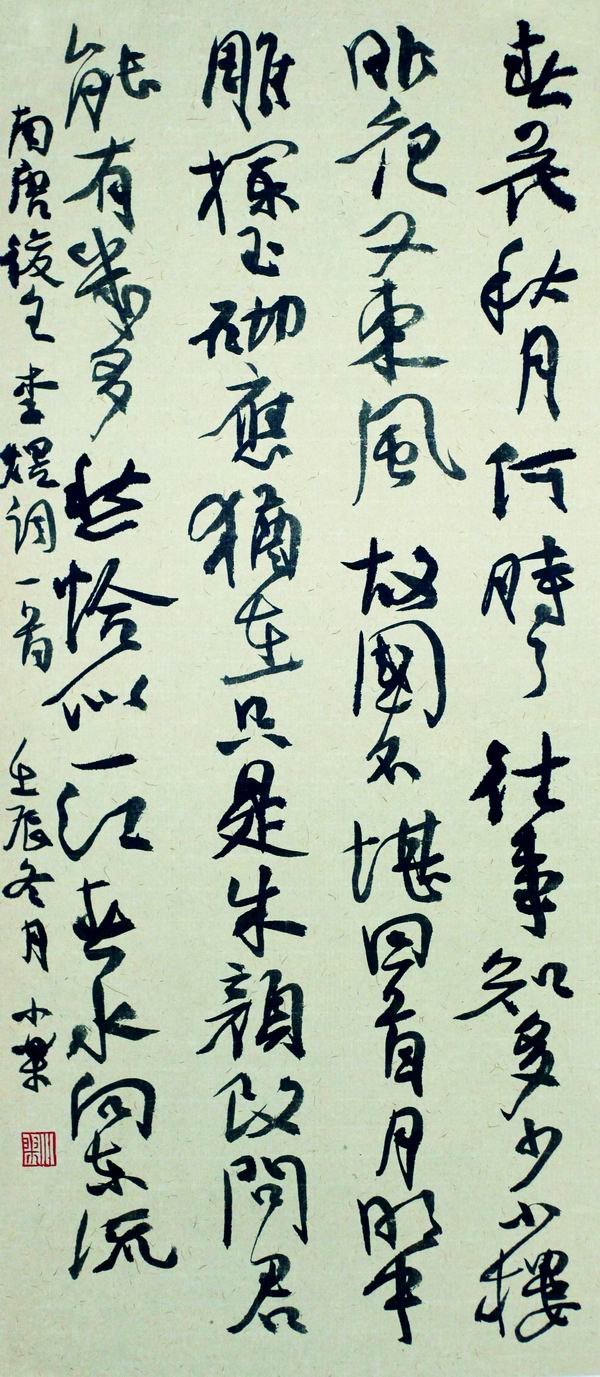 春花秋月何時了往事知多少小樓
昨夜又東風故國不堪回首月明中
雕欄玉砌應猶在只是朱顏改問君
能有幾多愁恰似一江春水向東流
南唐後主李煜詞一首 壬辰冬月 小樂